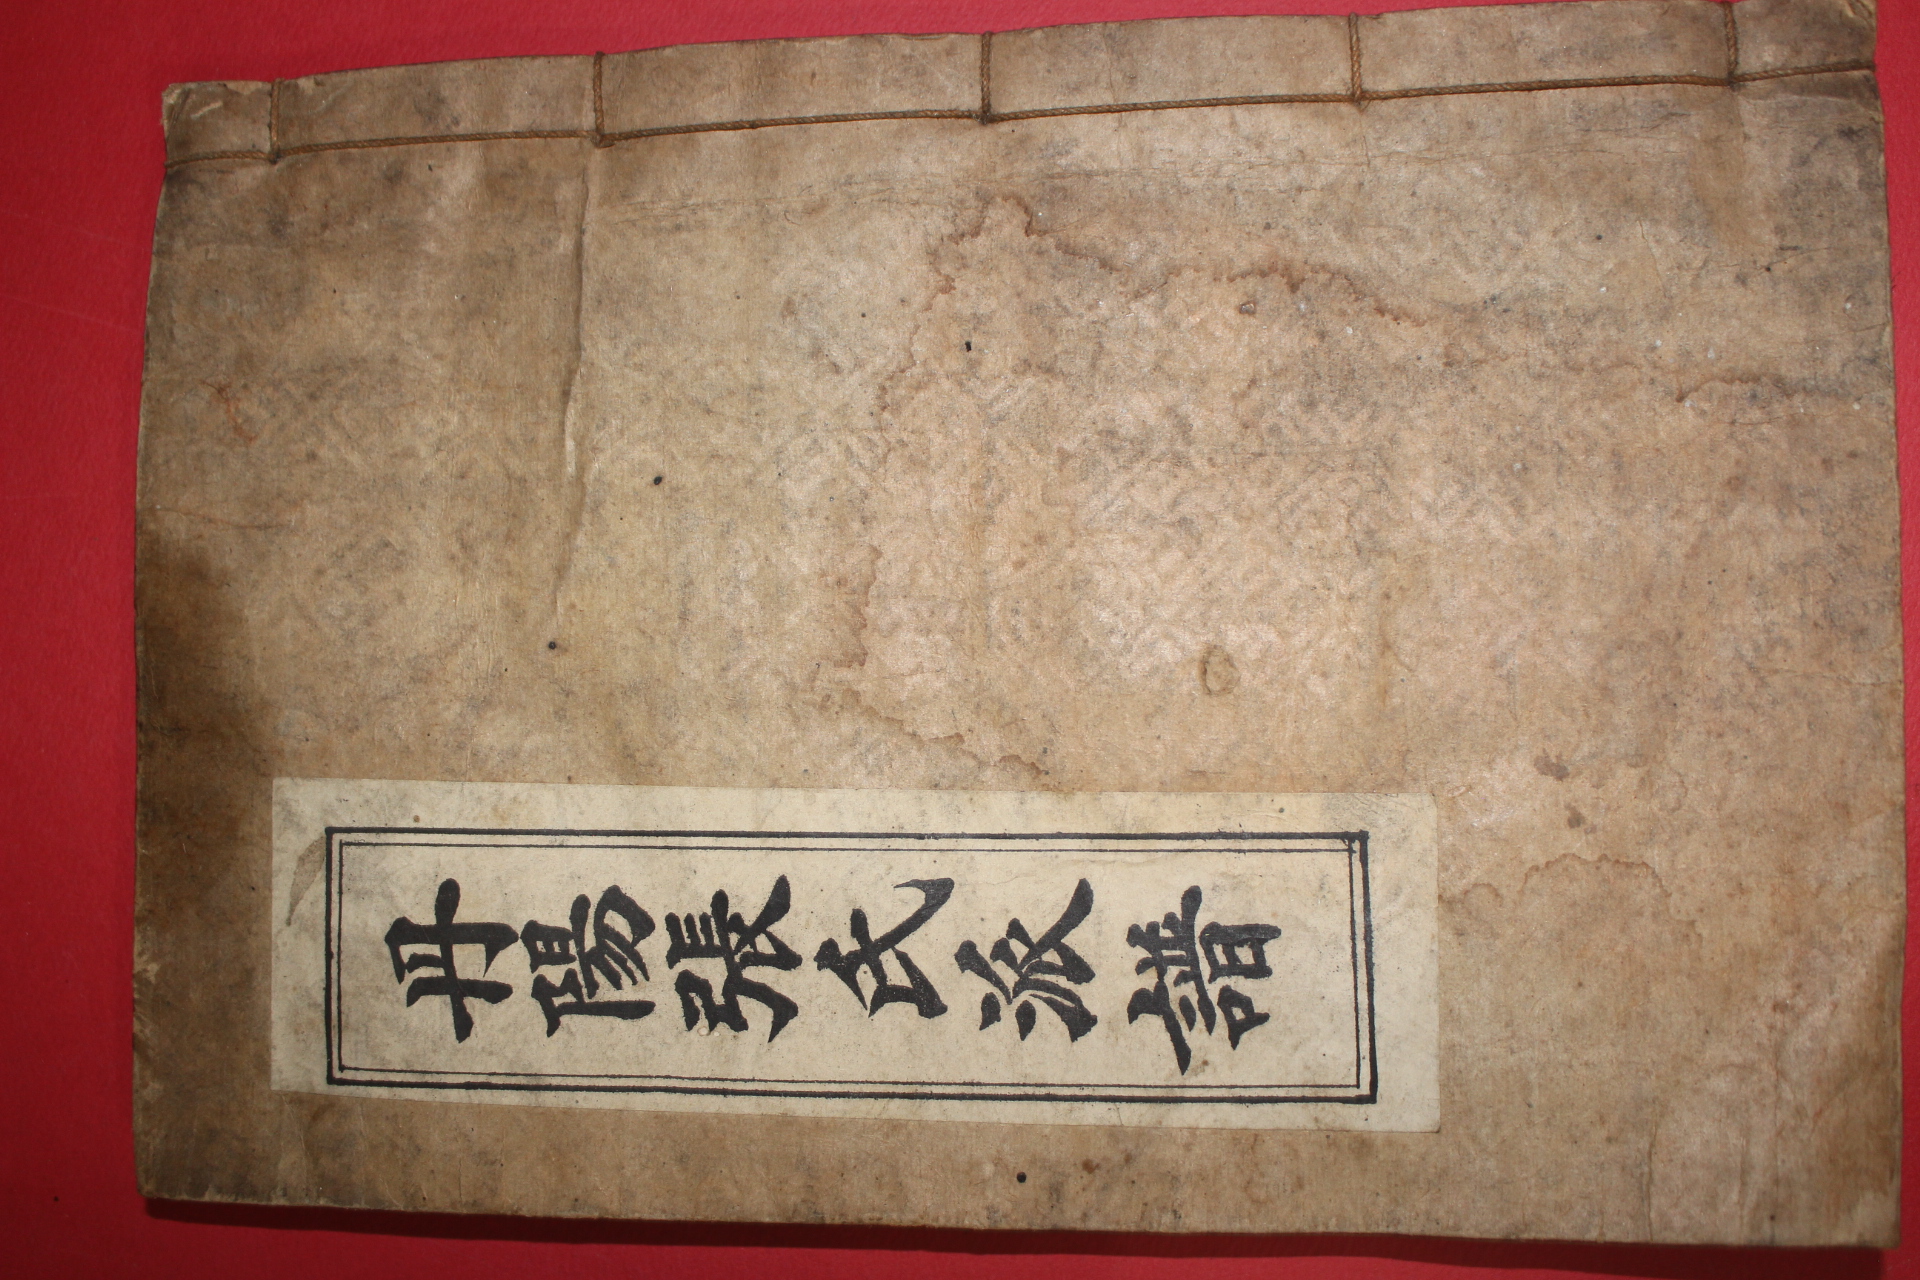 丹陽張氏派譜